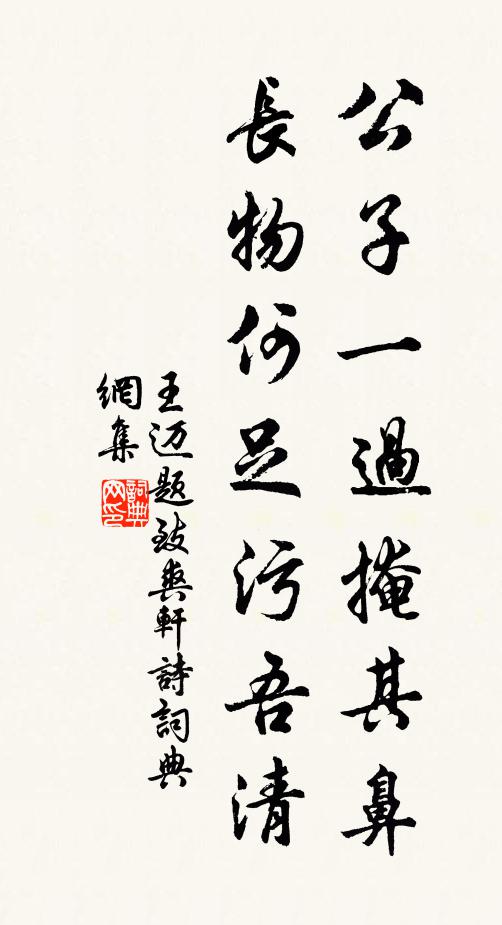 公子一過掩其鼻
長物何足污吾清
王迈题致爽軒詩詞典
網集
詞典
网印